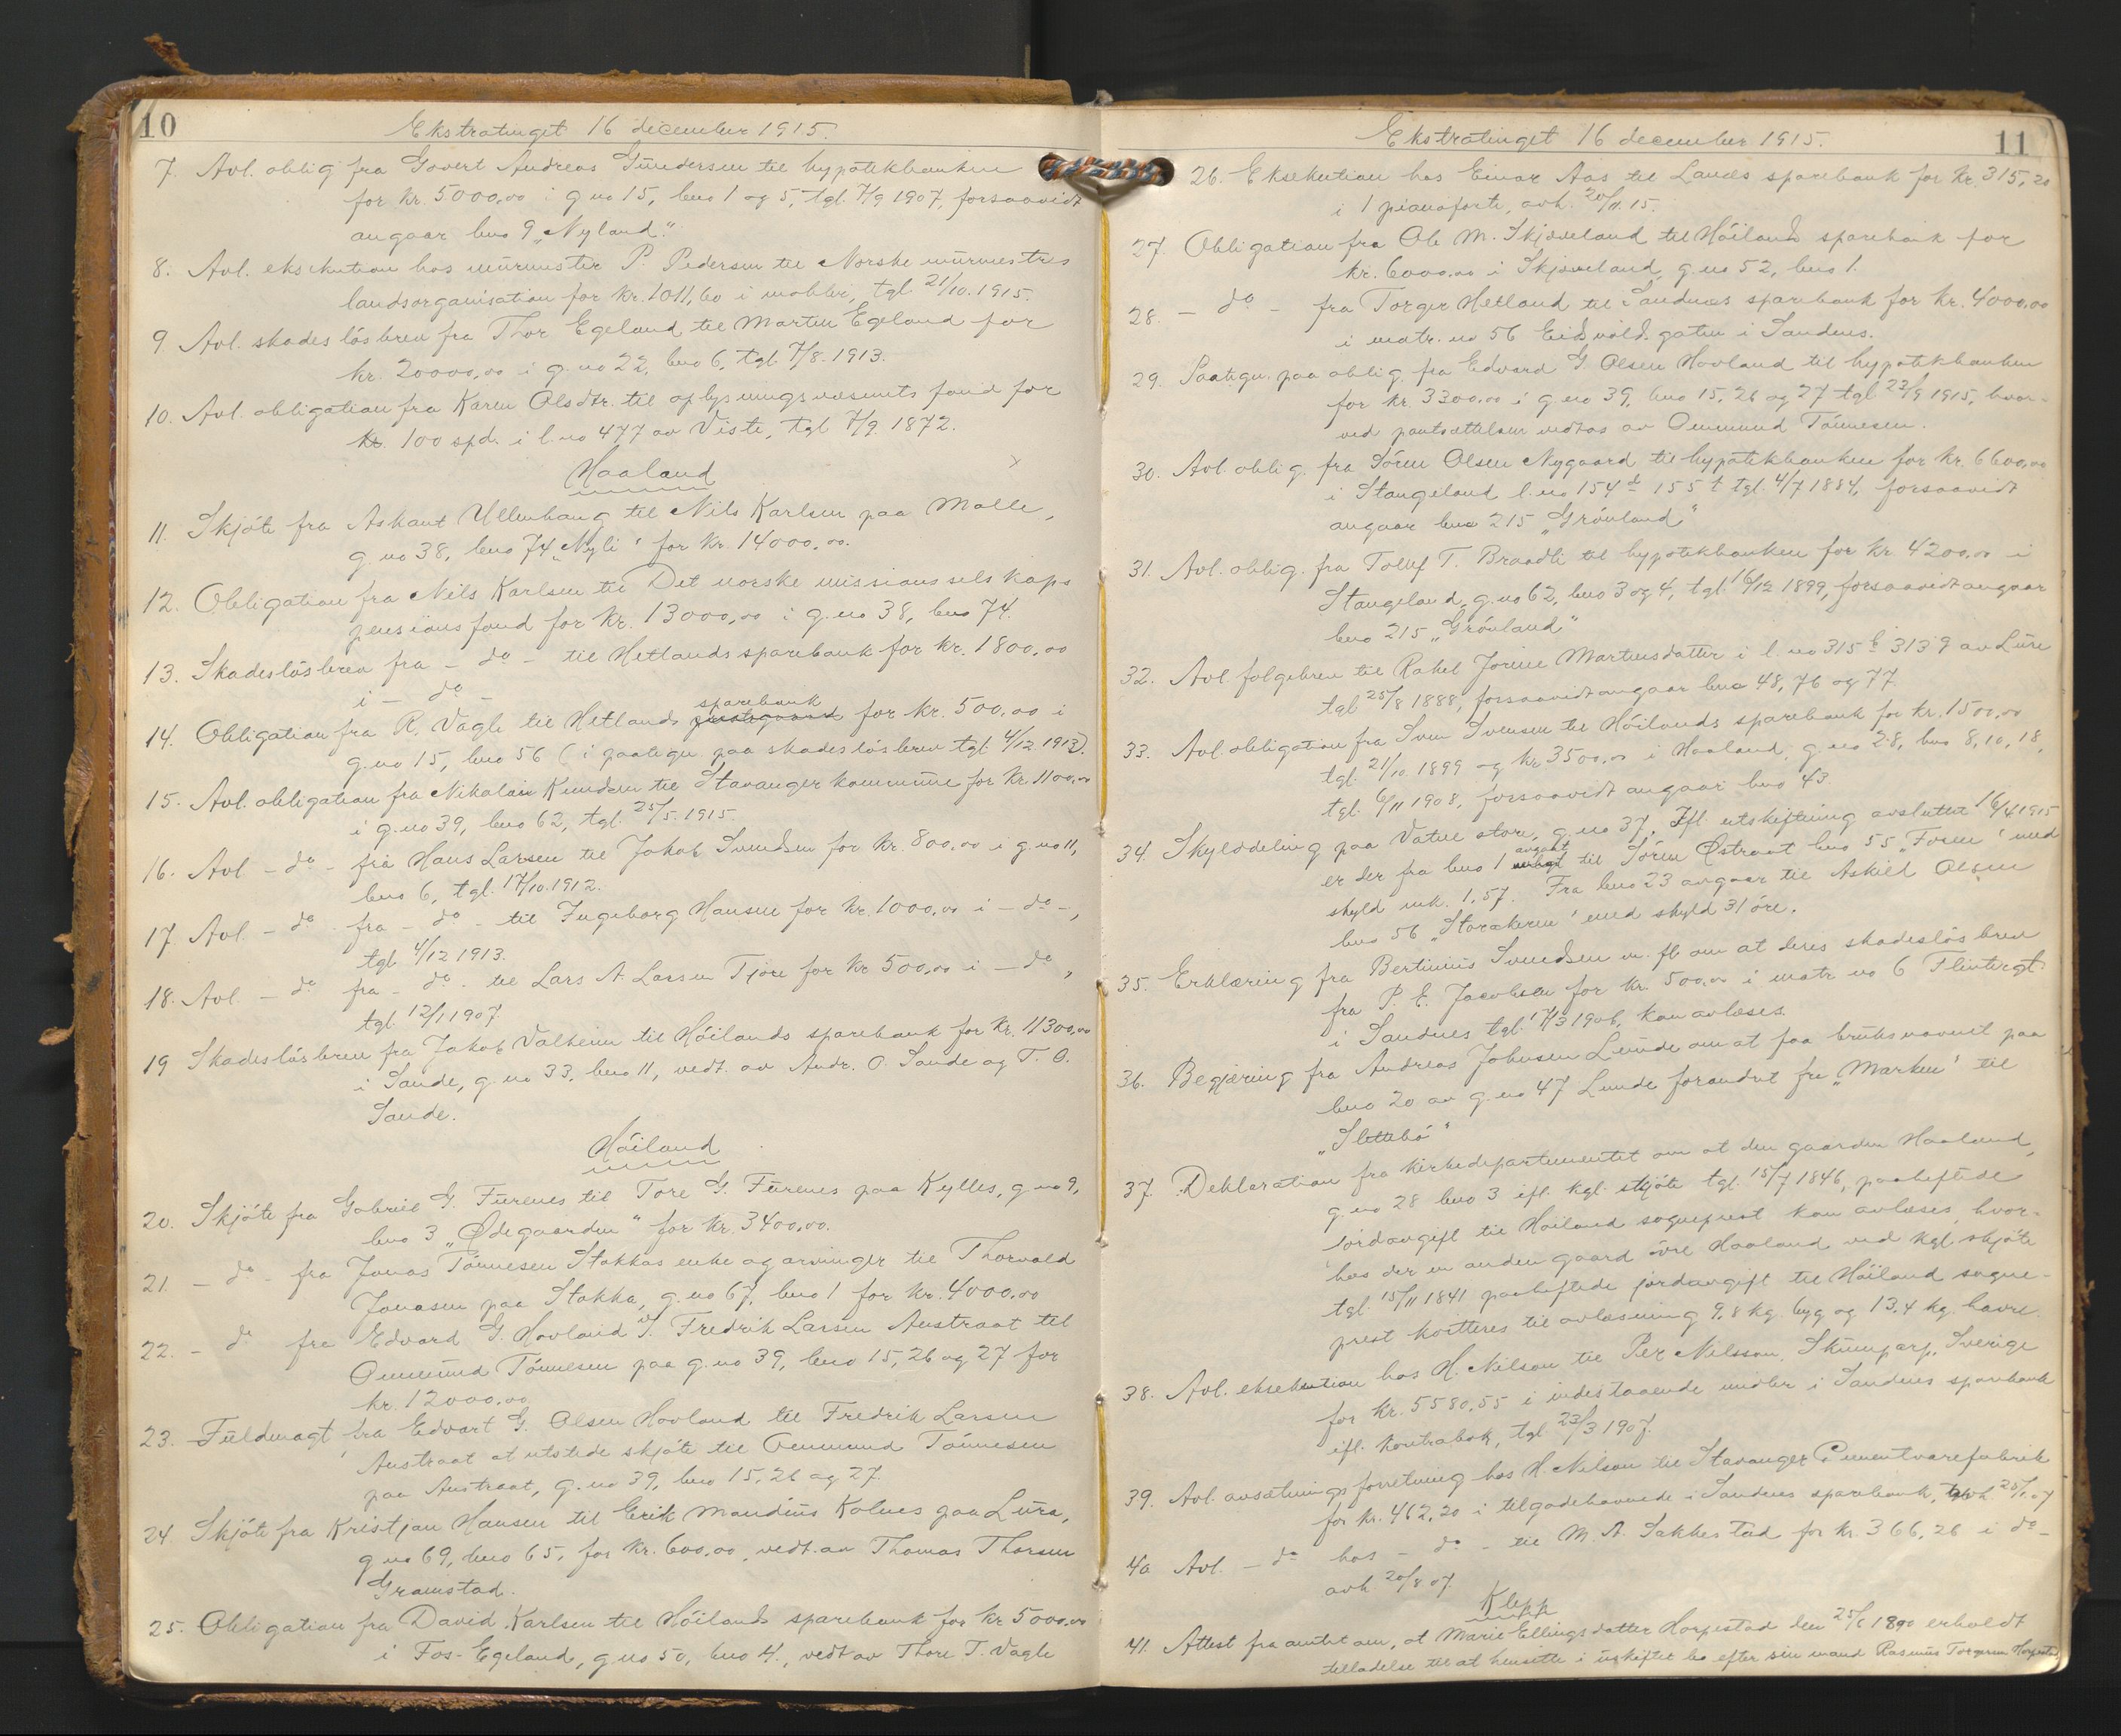 10
Ekstratinget 16 december 1915.
7. Avl. oblig fra Govert Andreas Gundersen til hypotekbanken
for kr. 5000,00 i g no 15, bno 1 og 5, tgl. 7/9 1907, forsaavidt
angaar bno 9 „Nyland."
8. Avl. eksekution hos murmester P. Pedersen til Norske murmestres
landsorganisation for kr. 1011,60 i møbler, tgl. 21/10. 1915.
9. Avl. skadesløsbrev fra Thor Egeland til Martin Egeland for
kr. 20000,00 i g. no 22, bno 6, tgl. 7/8. 1913.
10. Avl. obligation fra Karen Olsdtr. til oplysningsvæsenets fond for
kr. 100 spd. i l. no 477 av Viste, tgl 7/9. 1872.
Haaland
11. Skjøte fra Askaut Ullenhaug til Nils Karlsen paa Malle,
g no 38, bno 74 „Nyli" for kr. 14000,00.
12. Obligation fra Nils Karlsen til Det norske missionsselskaps
pensionsfond for kr. 13000,00 i g. no 38, bno 74.
13. Skadesløsbrev fra – do – til Hetlands sparebank for kr. 1800,00
i – do –
14. Obligation fra R. Vagle til Hetlands sparebank for kr. 500,00 i
g. no 15, bno 56 (i paategn. paa skadesløsbrev tgl 4/12 1913).
15. Avl. obligation fra Nikolai Knudsen til Stavanger kommune for kr 1100,00
i g. no 39, bno 62, tgl. 25/5. 1915.
16. Avl – do – fra Hans Larsen til Jakob Svendsen for kr. 800,00 i g. no 11,
bno 6, tgl. 17/10. 1912.
17. Avl – do – fra – do – til Ingeborg Hansen for kr. 1000,00 i – do –,
tgl 4/12 1913.
18. Avl. – do fra – do – til Lars A. Larsen Tjøre for kr 500,00 i – do,
tgl. 12/1 1907.
19 Skadesløsbrev fra Jakob Valheim til Høilands sparebank for kr. 11300,00
i Sande, g. no 33, bno 11, vedt. av Andr. O. Sande og T. O.
Sande.
Høiland
20. Skjøte fra Gabriel G. Furenes til Tore G. Furenes paa Kylles, g no 9,
bno 3 „Ødegaarden" for kr. 3400,00.
21. – do – fra Jonas Tønnesen Stokkas enke og arvinger til Thorvald
Jonasen paa Stokka, g. no 67, bno 1 for kr. 4000,00
22. – do fra Edvard G. Hovland v/ Fredrik Larsen Austraat til
Ommund Tønnesen paa g. no 39, bno 15, 26 og 27 for
kr. 12000,00
23. Fuldmagt fra Edvart G. Olsen Hovland til Fredrik Larsen
Austraat at utstede skjøte til Ommund Tønnesen
paa Austraat, g. no 39, bno 15, 26 og 27.
24 Skjøte fra Kristjan Hansen til Erik Mandius Kolnes paa Lura,
g no 69, bno 65, for kr. 600,00, vedt. av Thomas Thorsen
Gramstad.
25. Obligation fra David Karlsen til Høilands sparebank for kr 5000,00
i Fos-Egeland, g no 50, bno 4, vedt av Thore T. Vagle
11
Ekstratinget 16 december 1915.
26. Eksekution hos Einar Aas til Lunds sparebank for kr. 315,20
i 1 pianoforte, avh. 20/11. 15.
27. Obligation fra Ole M. Skjæveland til Høilands sparebank for
kr. 6000,00 i Skjæveland, g. no 52, bno 1.
28. – do – fra Torger Hetland til Sandnæs sparebank for kr. 4000,00
i matr. no 56 Eidsvoldsgaten i Sandnes.
29. Paategn. paa oblig. fra Edvard G. Olsen Hovland til hypotekbanken
for kr. 3300,00 i g. no 39, bno 15, 26 og 27 tgl 23/9 1915, hvor-
ved pantsættelsen vedtas av Ommund Tønnesen.
30. Avl. oblig. fra Søren Olsen Nygaard til hypotekbanken for kr. 6600,00
i Stangeland l. no 154 d 155 t tgl. 4/7 1884, forsaavidt
angaar bno 215 „Grønland"
31. Avl. oblig. fra Tolluf T. Braadli til hypotekbanken for kr. 4200,00 i
Stangeland, g. no 62, bno 3 og 4, tgl. 16/12 1899, forsaavidt angaar
bno 215 „Grønland"
32. Avl. følgebrev til Rakel Jorine Martinsdatter i l. no 315 b 313 g av Lure
tgl 25/8 1888, forsaavidt angaar bno 48, 76 og 77.
33. Avl obligation fra Sven Svensen til Høilands sparebank for kr. 1500,00
tgl. 21/10 1899 og kr 3500,00 i Haaland, g. no 28, bno 8, 10, 18,
tgl. 6/11 1908, forsaavidt angaar bno 43.
34. Skylddeling paa Vatne store, g. no 37. Ifl. utskiftning avsluttet 16/4 1915
er der fra bno 1 avgaat til Søren Østraat bno 55 „Foren" med
skyld mk. 1,57. Fra bno 23 avgaar til Askild Olsen
bno 56 „Storakeren" med skyld 31 øre.
35. Erklæring fra Bertinius Svendsen m. fl. om at deres skadesløsbrev
fra P. E. Jacobsen for kr. 500,00 i matr. no 6 Flintergt
i Sandnes tgl. 17/3 1906, kan avlæses.
36. Begjæring fra Andreas Johnsen Lunde om at faa bruksnavnet paa
bno 20 av g. no 47 Lunde forandret fra „Marken" til
„Slettebø"
37. Deklaration fra Kirkedepartementet om at den gaarden Haaland,
g. no 28 bno 3 ifl. kgl. skjøte tgl. 15/7 1846, paaheftede
jordavgift til Høiland sogneprest kan avløses, hvor-
hos der en anden gaard øvre Haaland ved kgl. skjøte
tgl. 15/11 1841 paaheftede jordavgift til Høiland sogne-
prest kvitteres til avløsning 9,8 kg. byg og 13,4 kg. havre.
38. Avl. eksekution hos H. Nilson til Per Nilsson, Skumparp, Sverige
for kr. 5580,55 i indestaaende midler i Sandnes sparebank
ifl. kontrabok, tgl 23/3 1907.
39. Avl. avsætningsforretning hos H. Nilson til Stavanger Cementvarefabrik
for kr. 462,20 i tilgodehavende i Sandnes sparebank,
40 Avl. – do – hos – do – til M. A. Sakkestad for kr. 366,26 i do –
avh 20/8 07.
Klepp
41. Attest fra amtet om, at Marie Ellingsdatter Horpestad den 25/6 1890 erholdt
tilladelse til at hensitte i uskiftet bo efter sin mand Rasmus Torgersen Horpestad